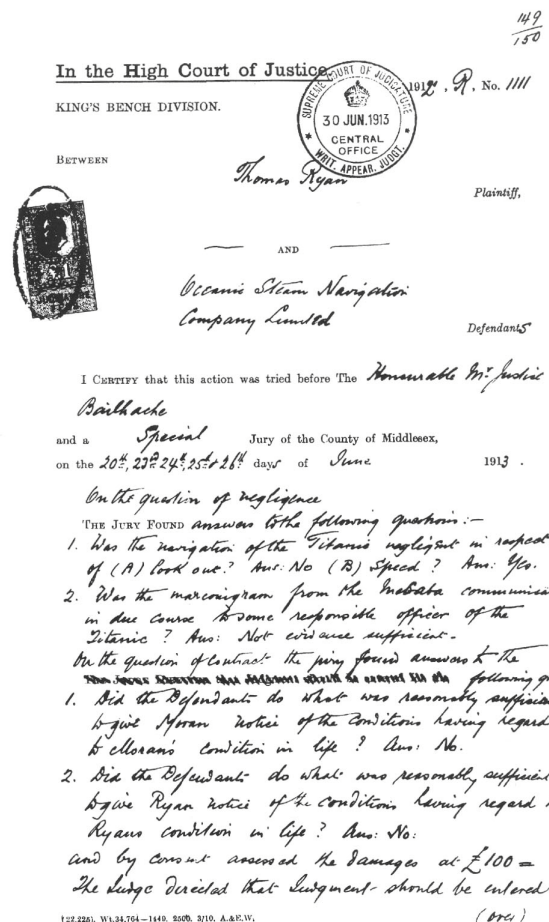 149
150
In the High Court of Justice.
1912, R, No. 1111
KING'S BENCH DIVISION.
SUPREME COURT OF JUDICATURE
30 JUN.1913
CENTRAL
OFFICE
WRIT. APPEAR. JUDGT.
BETWEEN
Thomas Ryan
Plaintiff,
AND
Oceanic Steam Navigation
Company Limited
Defendants
I CERTIFY that this action was tried before The Honourable Mr. Justice
Bailhache
and a Special Jury of the County of Middlesex,
on the 20th, 23rd 24th, 25th & 26th days of June 1913.
On the question of negligence
THE JURY FOUND answers to the following questions:-
1. Was the navigation of the Titanic negligent in respect
of (A) look out? Ans: No (B) Speed? Ans: Yes.
2. Was the marconigram from the Mesaba communica
in due course to some responsible officer of the
Titanic? Ans: Not evidence sufficient.
On the question of contract the jury found answers to the
following q
1. Did the Defendants do what was reasonably sufficien
to give Moran notice of the conditions having regard
to Moran's condition in life? Ans: No.
2. Did the Defendants do what was reasonably sufficient
to give Ryan notice of the conditions having regard
Ryans condition in life? Ans: No:
and by consent assessed the damages at £100 =
The Judge directed that Judgment should be entered
122,225). Wt.34,764—1449. 2500. 3/10. A.&E.W.
(over)